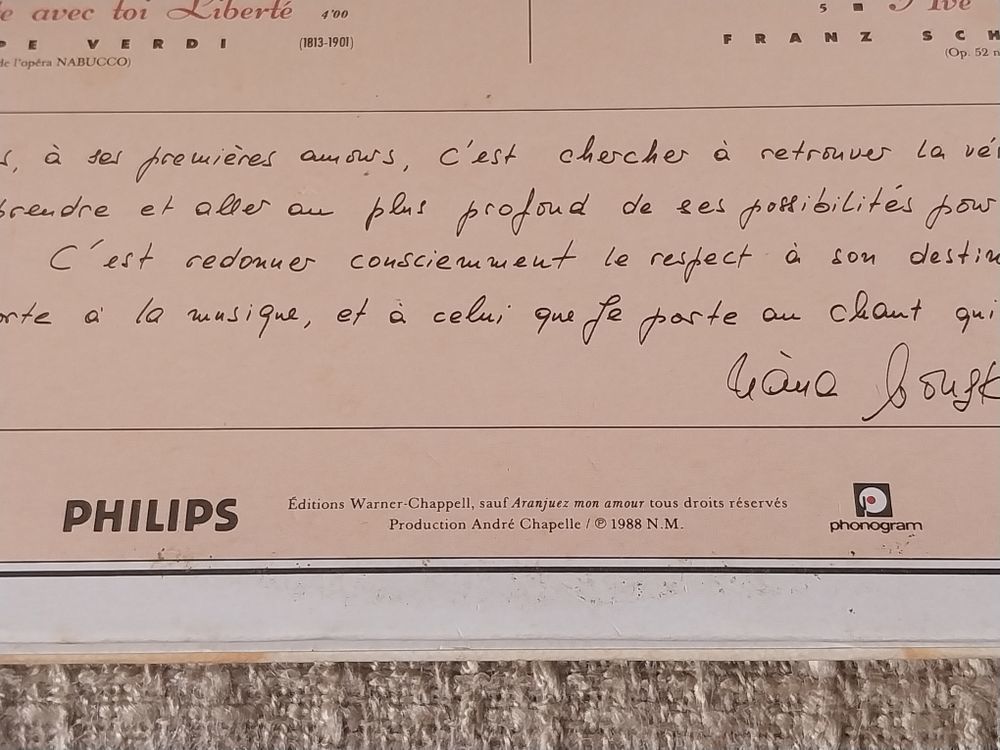 e avec toi Liberté 4'00
PE VERDI (1813-1901)
de l'opéra NABUCCO)
5 ■ Ave
FRANZ SCH
(Op. 52 n
s, à ses premières amours, c'est chercher à retrouver la vér
prendre et aller au plus profond de ses possibilités pour
C'est redonner consciemment le respect à son destin
orte à la musique, et à celui que Je porte au chant qui
Nàna Mousk
PHILIPS
Éditions Warner-Chappell, sauf Aranjuez mon amour tous droits réservés
Production André Chapelle / ℗ 1988 N.M.
phonogram